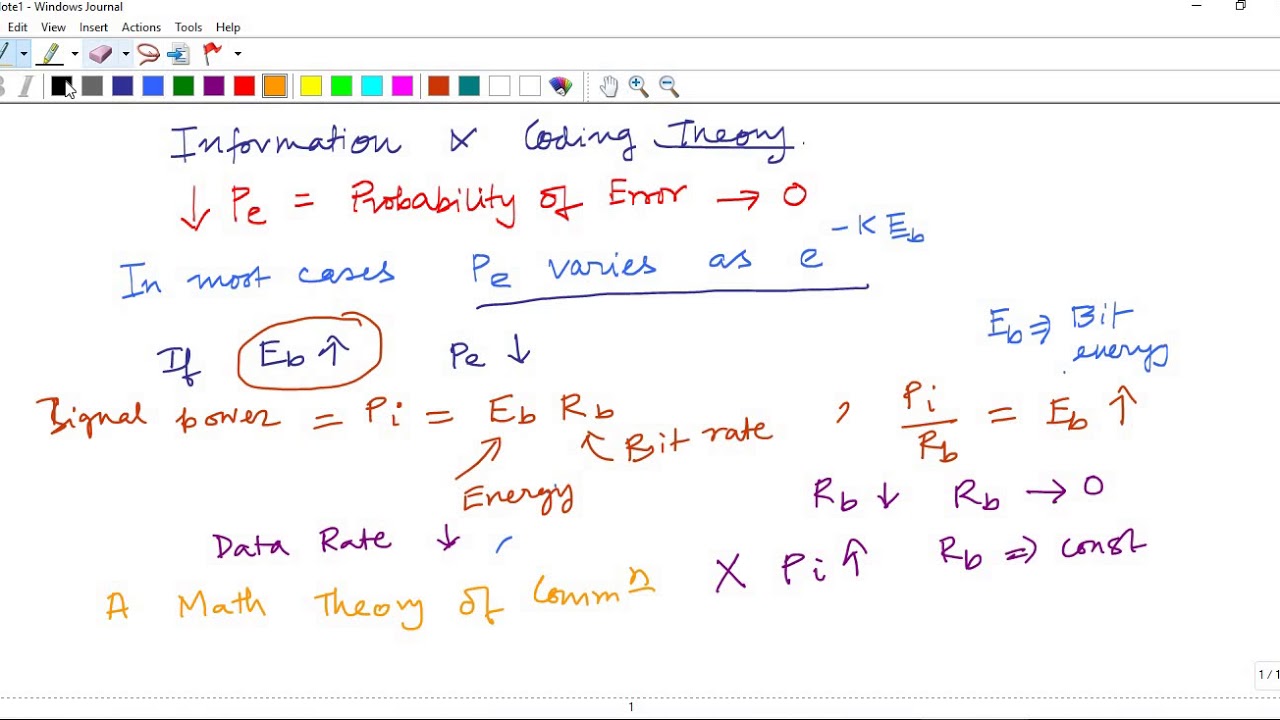 ote1 - Windows Journal
Edit View Insert Actions Tools Help
Information & Coding Theory.
↓ Pe = Probability of Error → 0
In most cases Pe varies as e^-K Eb
Eb ⇒ Bit
energy
If Eb ↑ Pe ↓
Signal power = Pi = Eb Rb , Pi/Rb = Eb ↑
Bit rate
Energy
Rb ↓ Rb → 0
Data Rate ↓
X Pi ↑ Rb ⇒ const
A Math Theory of Comm^n
1 / 1
1